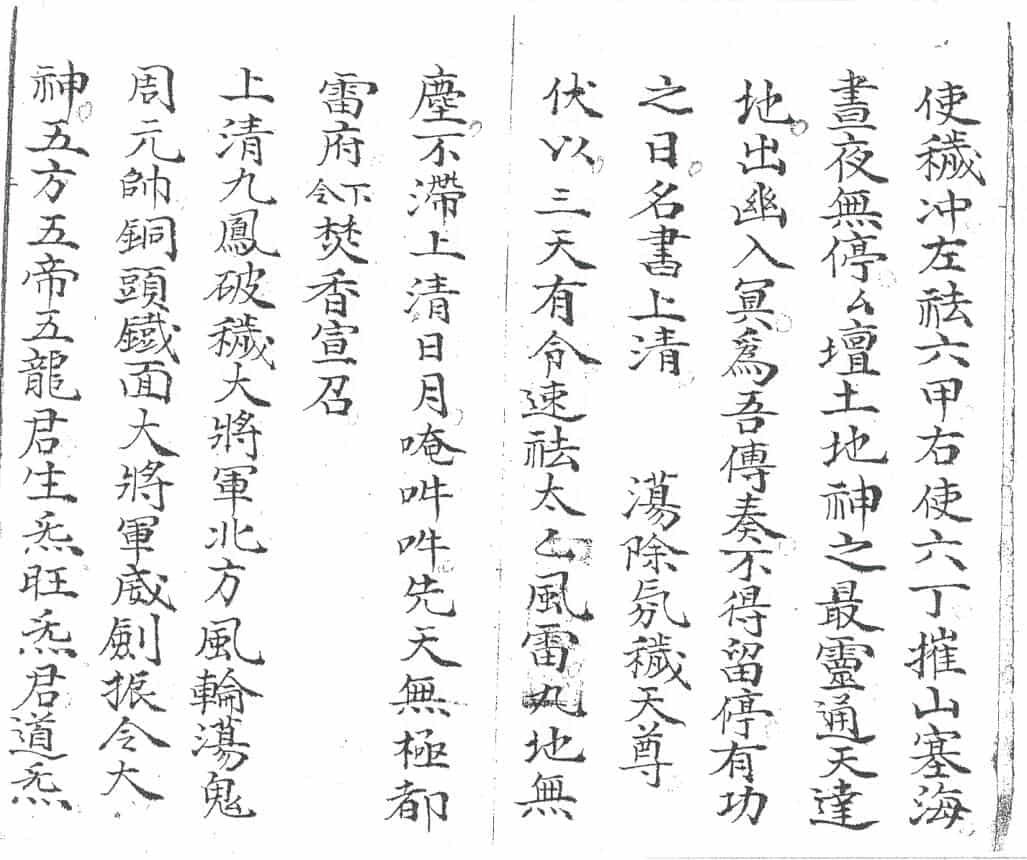 使穢冲左祛六甲右使六丁摧山塞海
晝夜無停厶壇土地神之最靈通天達
地出幽入冥爲吾傳奏不得留停有功
之日名書上清　蕩除氛穢天尊
伏以三天有令速祛太乙風雷九地無
塵不滯上清日月唵吽吽先天無極都
雷府下令焚香宣召
上清九鳳破穢大將軍北方風輪蕩鬼
周元帥銅頭鐵面大將軍威劍振令大
神五方五帝五龍君生炁旺炁君道炁